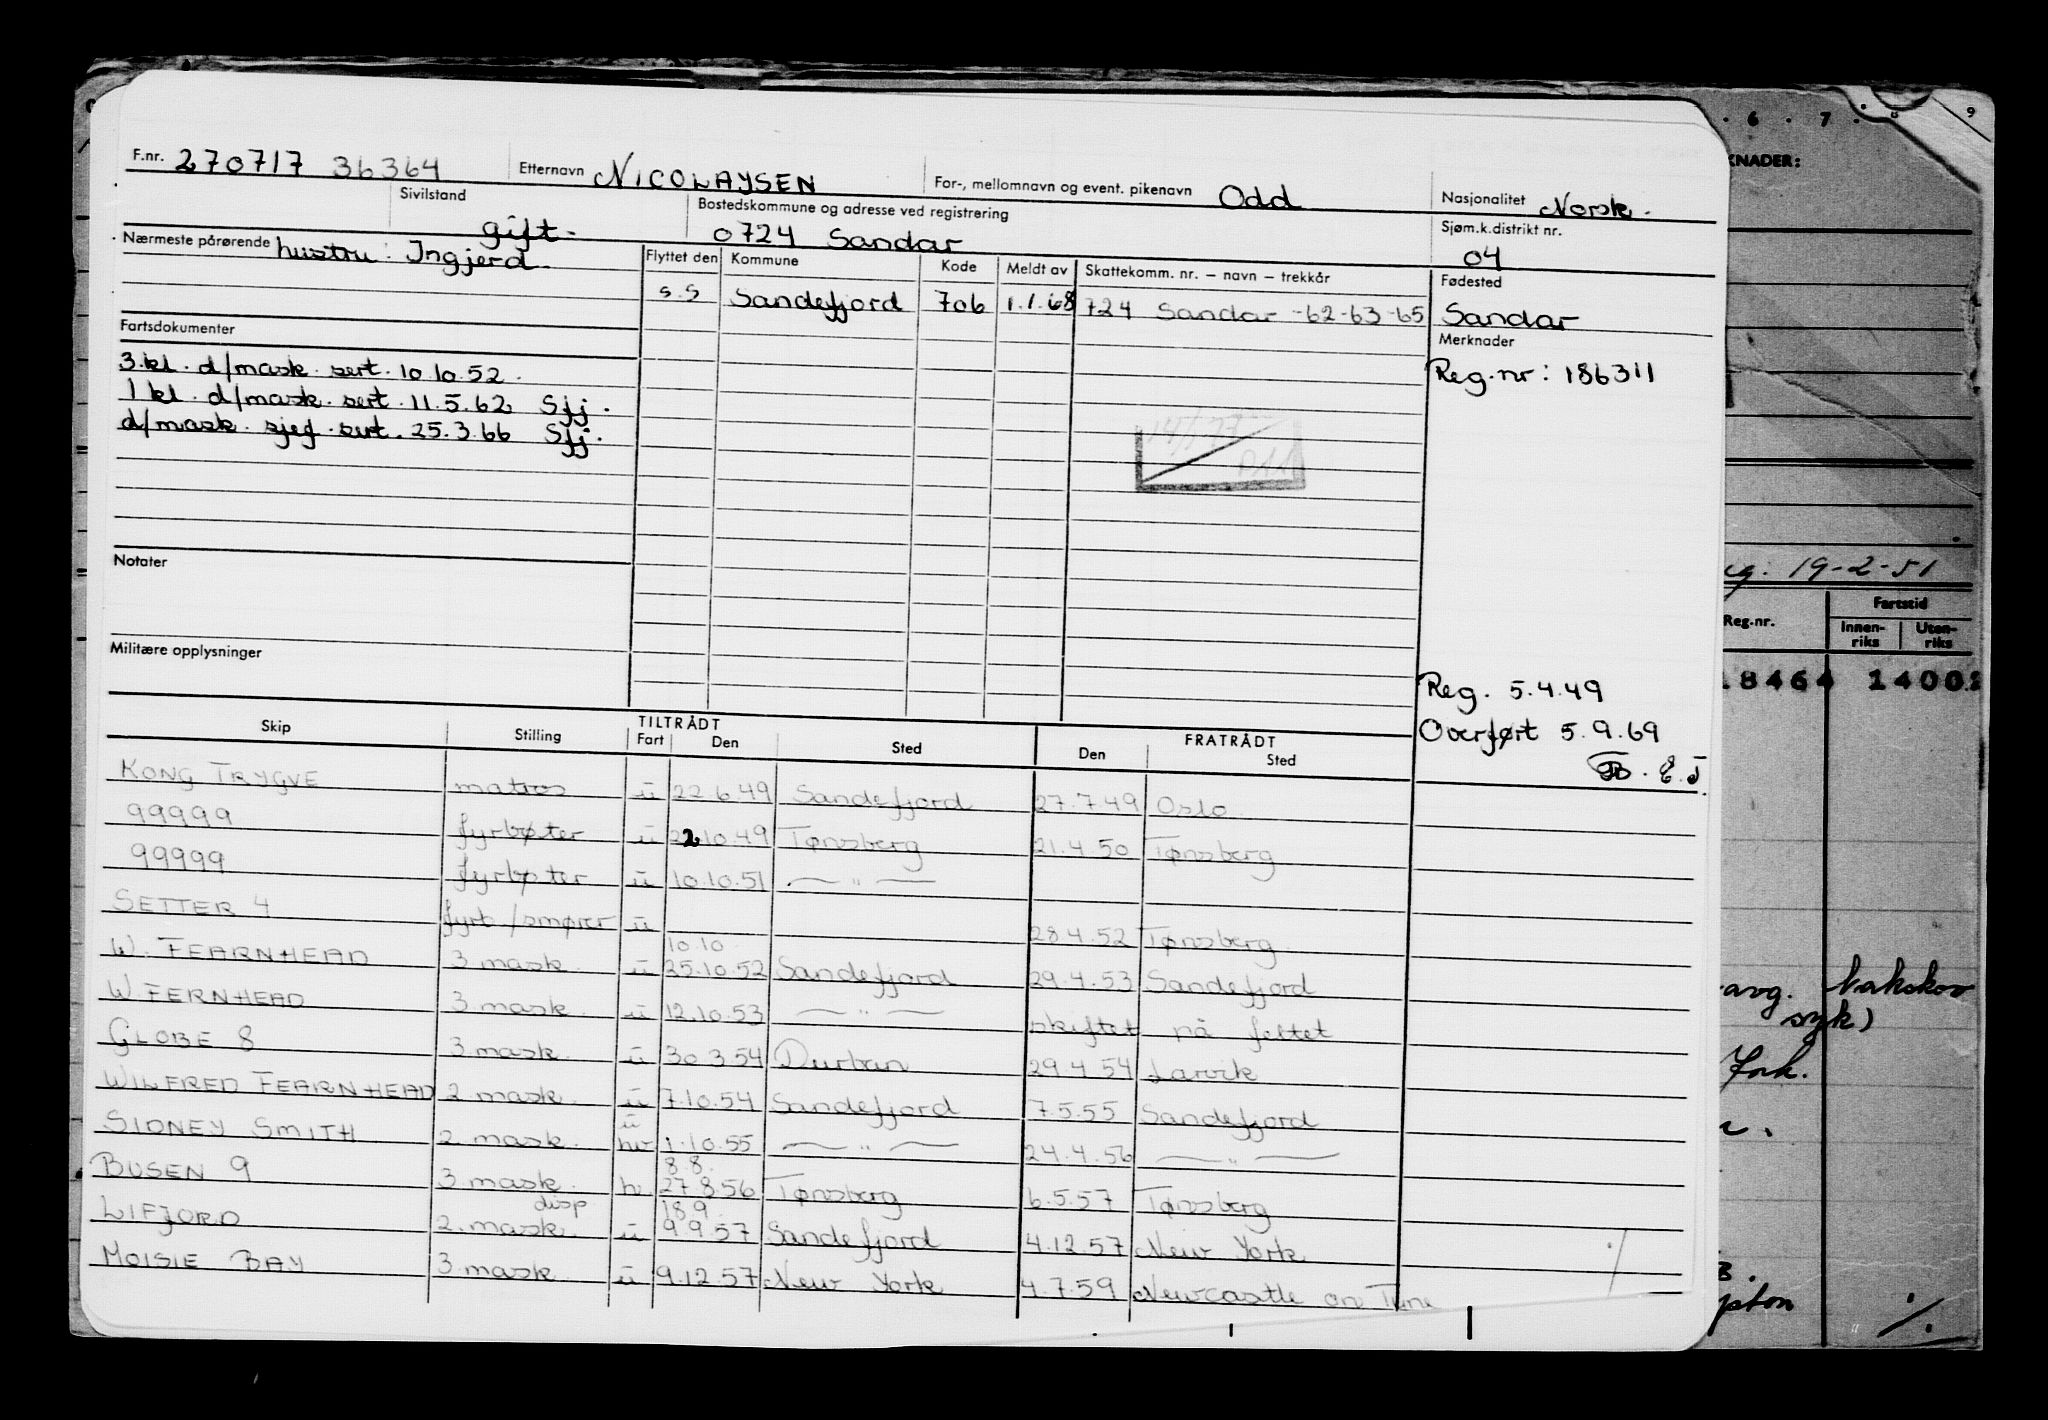 F.nr. 270717 36364 Etternavn NICOLAYSEN For-, mellomnavn og event. pikenavn Odd Nasjonalitet Norsk.
Sivilstand gift. Bostedskommune og adresse ved registrering 0724 Sandar Sjøm.k.distrikt nr. 04
Nærmeste pårørende hustru: Ingjerd
Flyttet den Kommune Kode Meldt av Skattekomm. nr. – navn – trekkår Fødested
s.s Sandefjord 706 1.1.68 724 Sandar -62-63-65 Sandar
Fartsdokumenter
3.kl. d/mask. sert. 10.10.52.
1 kl. d/mask. sert. 11.5.62 Sfj.
d/mask. sjef. sert. 25.3.66 Sfj.
Merknader
Reg.nr: 186311
14/1 77
Notater
Militære opplysninger
Reg. 5.4.49
Overført 5.9.69
E.J.
TILTRÅDT FRATRÅDT
Skip Stilling Fart Den Sted Den Sted
KONG TRYGVE matros u 22.6.49 Sandefjord 27.7.49 Oslo
99999 fyrbøter u 22.10.49 Tønsberg 21.4.50 Tønsberg
99999 fyrbøter u 10.10.51 — " —
SETTER 4 fyrb/smører u 28.4.52 Tønsberg
10.10.
W. FEARNHEAD 3 mask. u 25.10.52 Sandefjord 29.4.53 Sandefjord
W. FERNHEAD 3 mask. u 12.10.53 — " — skiftet på feltet
GLOBE 8 3 mask. u 30.3.54 Durban 29.4.54 Larvik
WILFRED FEARNHEAD 2 mask. u 7.10.54 Sandefjord 7.5.55 Sandefjord
u
SIDNEY SMITH 2. mask. hv 1.10.55 — " — 24.4.56 — " —
8.8.
BUSEN 9 3 mask. h. 27.8.56 Tønsberg 6.5.57 Tønsberg
disp 18 9.
LIFJORD 2. mask. u 9.9.57 Sandefjord 4.12.57 New York
MOISIE BAY 3 mask. u 9.12.57 New York 4.7.59 Newcastle on Tyne
6 . 7 . 8 9
KNADER:
19-2-51
Reg.nr. Fartstid
Innen-riks Uten-riks
18464 1400
avg. Nakskov
syk)
York.